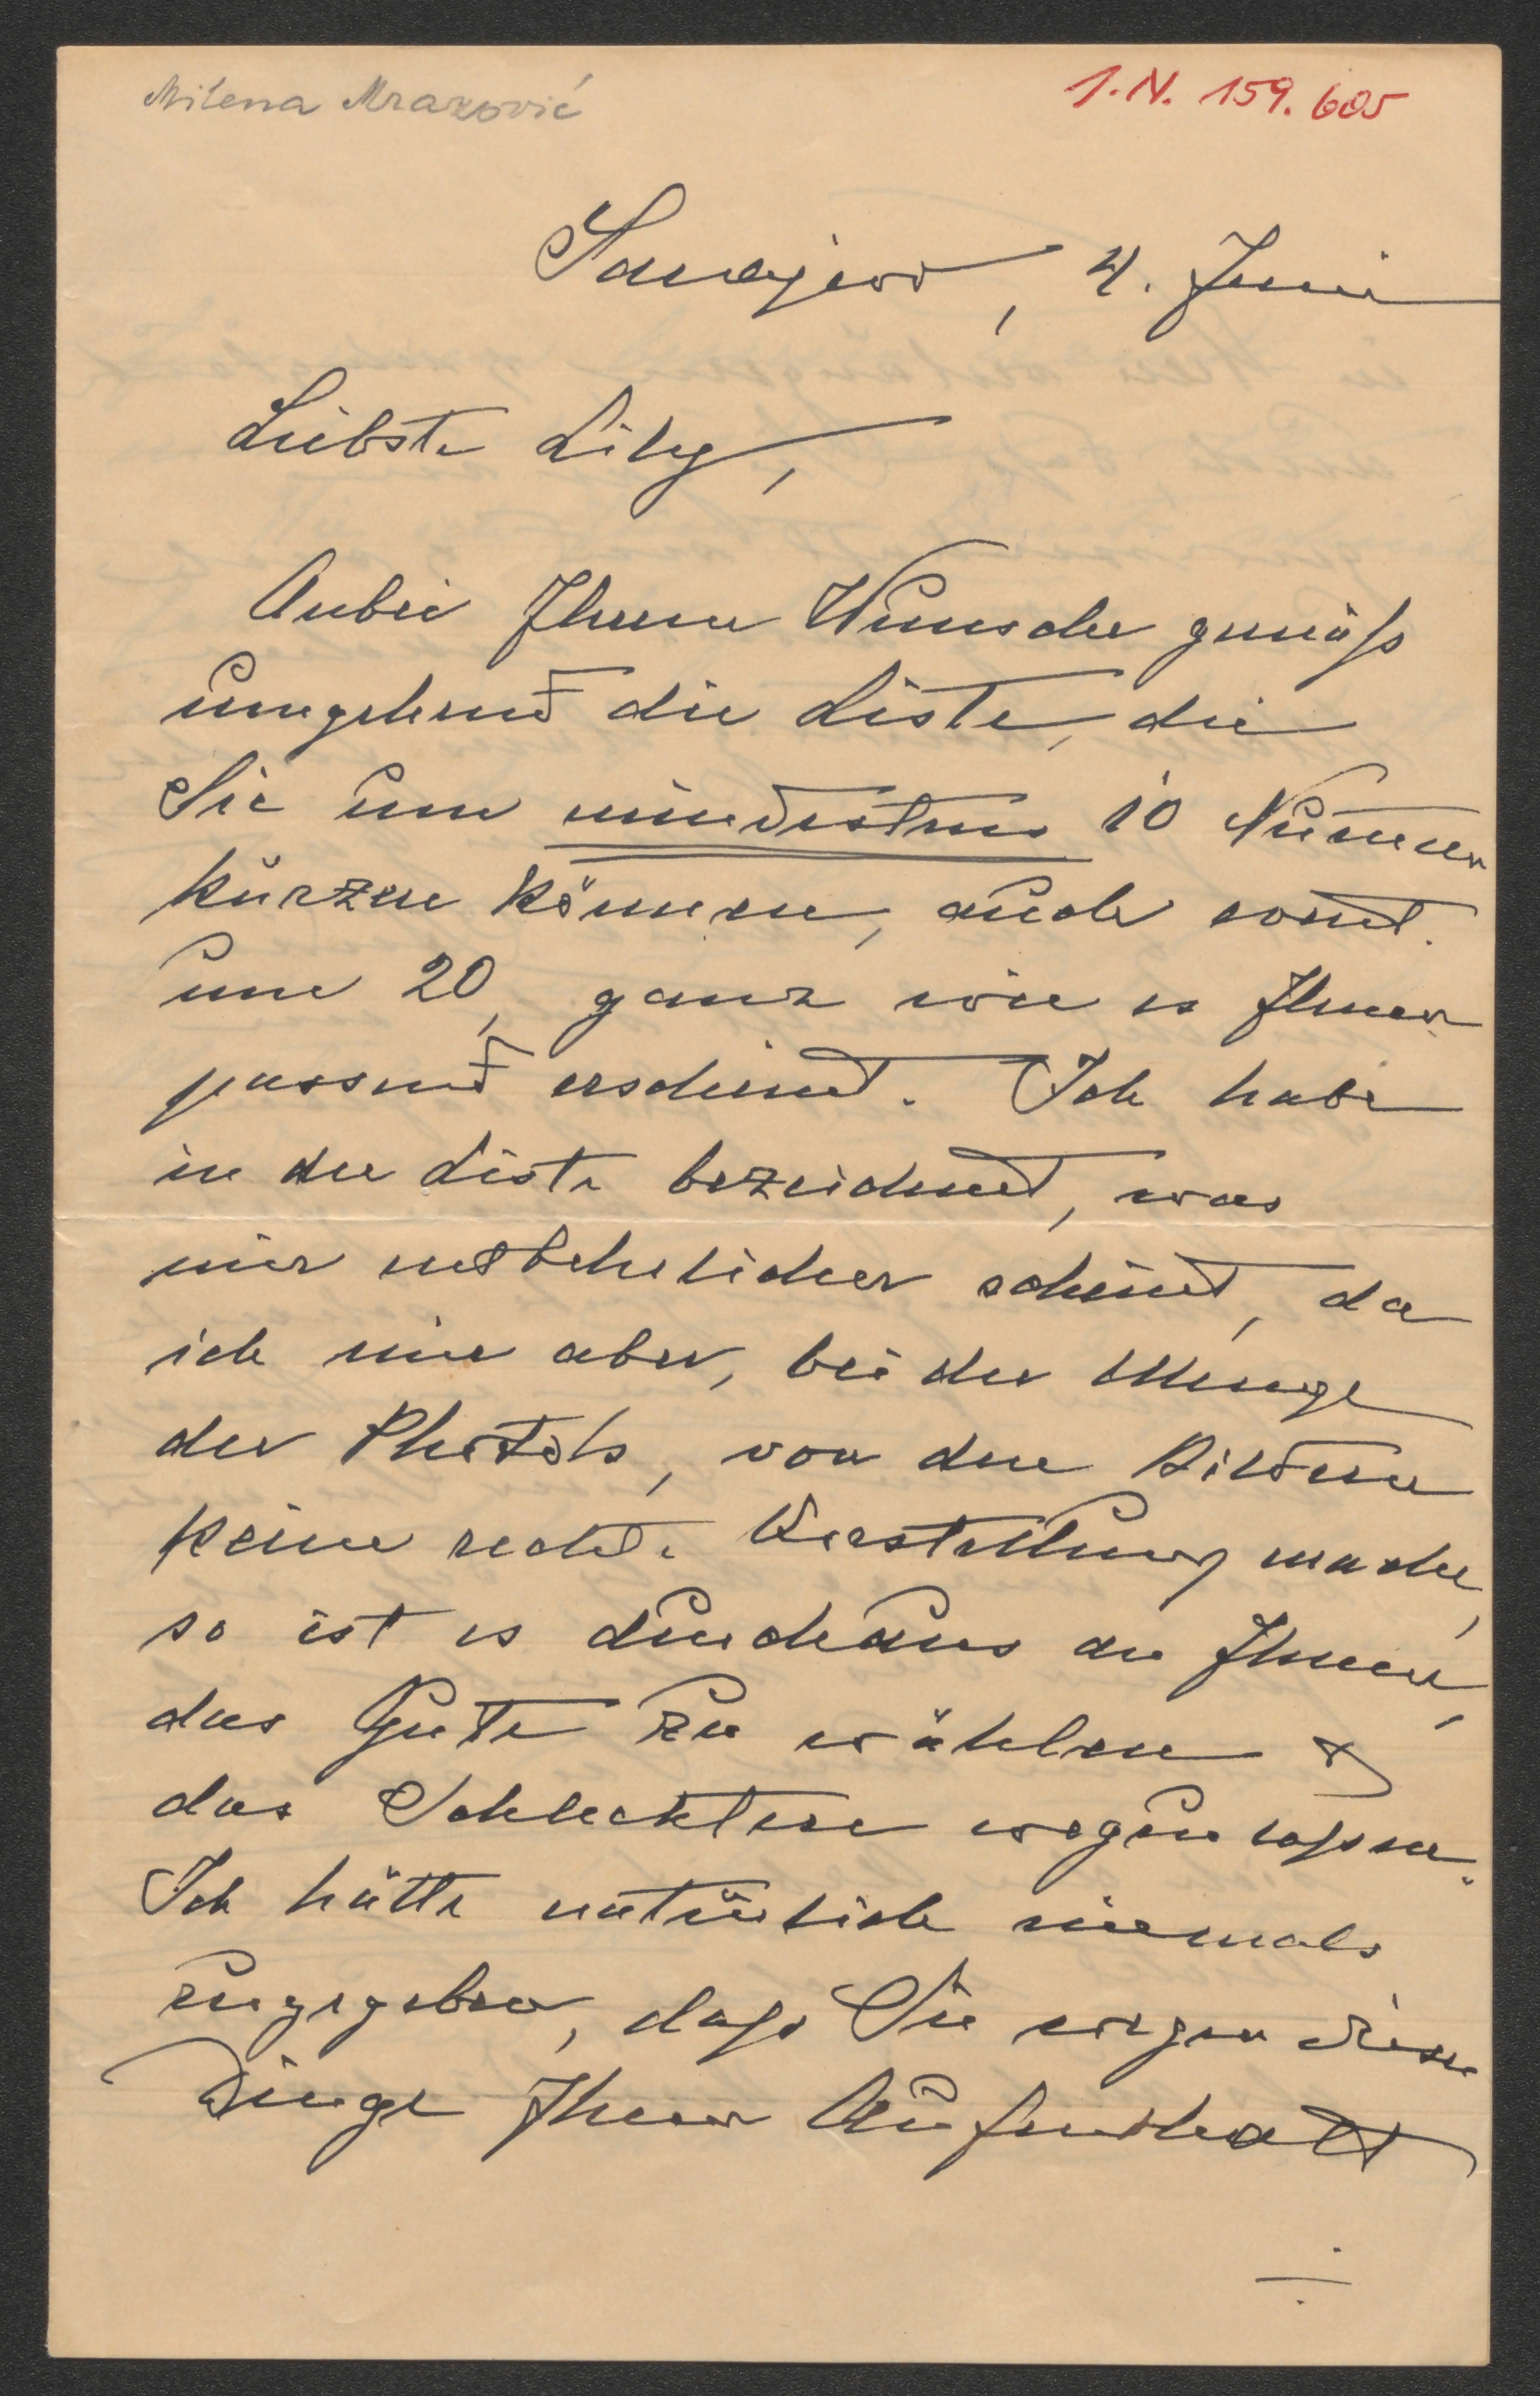 Milena Mrazović
I.N. 159.605
Sarajevo, 4. Juni
Liebste Lily,
Anbei Ihrem Wunsche gemäß
umgehend die Liste, die
Sie um mindestens 10 Numern
kürzen können, auch event.
um 20, ganz wie es Ihnen
passend erscheint. Ich habe
in der Liste bezeichnet, was
mir entbehrlicher scheint, da
ich mir aber, bei der Menge
der Photo's, von den Bildern
keine rechte Vorstellung mache,
so ist es durchaus an Ihnen,
das Gute zu wählen &
das Schlechtere wegzulassen.
Ich hätte natürlich niemals
zugegeben, daß Sie wegen dieser
Dinge Ihren Aufenthalt